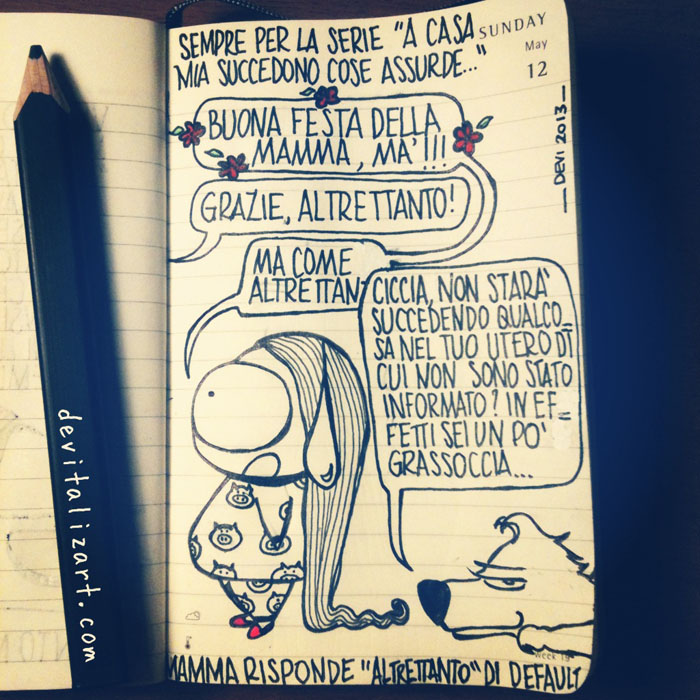 SEMPRE PER LA SERIE "A CASA
MIA SUCCEDONO COSE ASSURDE..."
SUNDAY
May
12
__DEVI 2013__
BUONA FESTA DELLA
MAMMA, MA'!!!
GRAZIE, ALTRETTANTO!
MA COME
ALTRETTAN
CICCIA, NON STARA'
SUCCEDENDO QUALCO=
SA NEL TUO UTERO DI
CUI NON SONO STATO
INFORMATO? IN EF=
FETTI SEI UN PO'
GRASSOCCIA...
week 19
MAMMA RISPONDE "ALTRETTANTO" DI DEFAULT
devitalizart.com